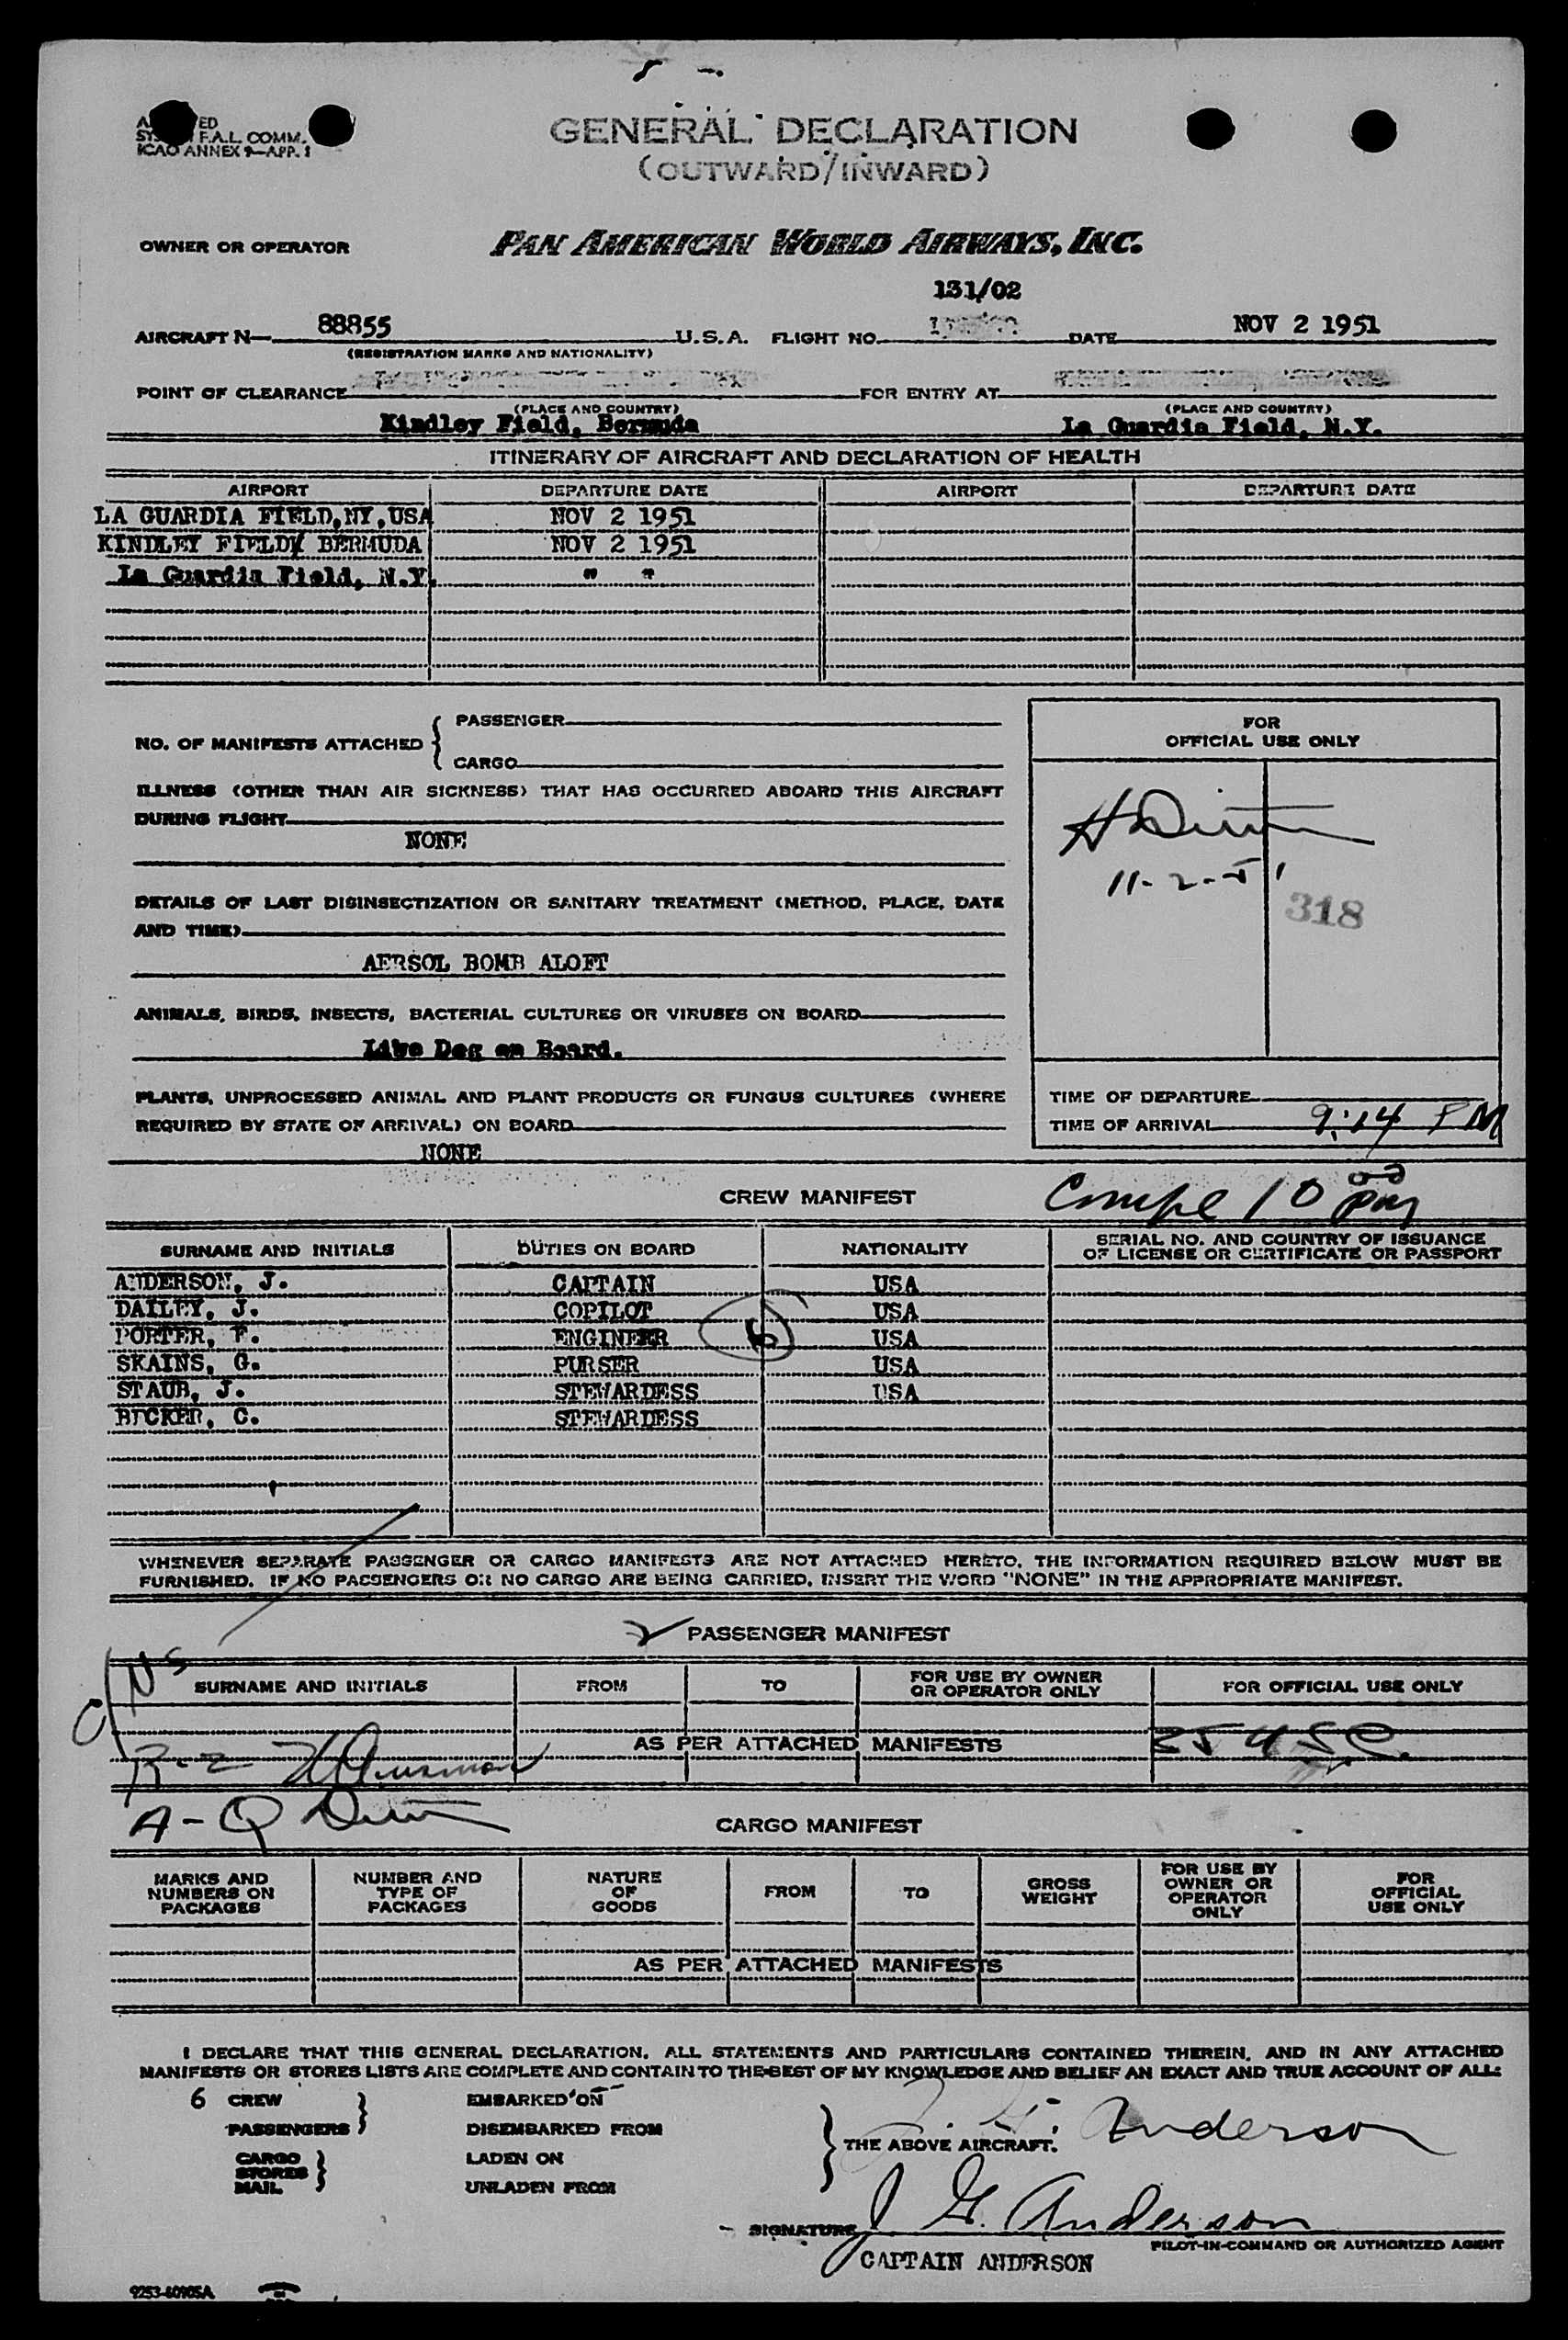 F.A.L. COMM.
ICAO ANNEX 9—APP. 1
GENERAL DECLARATION
(OUTWARD/INWARD)
OWNER OR OPERATOR PAN AMERICAN WORLD AIRWAYS, INC.
131/02
AIRCRAFT N— 88855 U.S.A. FLIGHT NO. DATE NOV 2 1951
(REGISTRATION MARKS AND NATIONALITY)
POINT OF CLEARANCE FOR ENTRY AT
(PLACE AND COUNTRY) (PLACE AND COUNTRY)
Kindley Field, Bermuda La Guardia Field, N.Y.
ITINERARY OF AIRCRAFT AND DECLARATION OF HEALTH
AIRPORT DEPARTURE DATE AIRPORT DEPARTURE DATE
LA GUARDIA FIELD,NY,USA NOV 2 1951
KINDLEY FIELD, BERMUDA NOV 2 1951
La Guardia Field, N.Y. " "
NO. OF MANIFESTS ATTACHED { PASSENGER
CARGO
FOR
OFFICIAL USE ONLY
ILLNESS (OTHER THAN AIR SICKNESS) THAT HAS OCCURRED ABOARD THIS AIRCRAFT
DURING FLIGHT
NONE
11-2-51
318
DETAILS OF LAST DISINSECTIZATION OR SANITARY TREATMENT (METHOD, PLACE, DATE
AND TIME)
AERSOL BOMB ALOFT
ANIMALS, BIRDS, INSECTS, BACTERIAL CULTURES OR VIRUSES ON BOARD
Live Dog on Board.
PLANTS, UNPROCESSED ANIMAL AND PLANT PRODUCTS OR FUNGUS CULTURES (WHERE
REQUIRED BY STATE OF ARRIVAL) ON BOARD
NONE
TIME OF DEPARTURE
TIME OF ARRIVAL 9:14 PM
CREW MANIFEST
Compl 10 00 PM
SURNAME AND INITIALS DUTIES ON BOARD NATIONALITY SERIAL NO. AND COUNTRY OF ISSUANCE
OF LICENSE OR CERTIFICATE OR PASSPORT
ANDERSON, J. CAPTAIN USA
DAILEY, J. COPILOT USA
PORTER, F. ENGINEER 6 USA
SKAINS, G. PURSER USA
STAUB, J. STEWARDESS USA
C. STEWARDESS
WHENEVER SEPARATE PASSENGER OR CARGO MANIFESTS ARE NOT ATTACHED HERETO, THE INFORMATION REQUIRED BELOW MUST BE
FURNISHED. IF NO PASSENGERS OR NO CARGO ARE BEING CARRIED, INSERT THE WORD "NONE" IN THE APPROPRIATE MANIFEST.
PASSENGER MANIFEST
SURNAME AND INITIALS FROM TO FOR USE BY OWNER
OR OPERATOR ONLY FOR OFFICIAL USE ONLY
AS PER ATTACHED MANIFESTS
R-Z
A-Q
CARGO MANIFEST
MARKS AND
NUMBERS ON
PACKAGES NUMBER AND
TYPE OF
PACKAGES NATURE
OF
GOODS FROM TO GROSS
WEIGHT FOR USE BY
OWNER OR
OPERATOR
ONLY FOR
OFFICIAL
USE ONLY
AS PER ATTACHED MANIFESTS
I DECLARE THAT THIS GENERAL DECLARATION, ALL STATEMENTS AND PARTICULARS CONTAINED THEREIN, AND IN ANY ATTACHED
MANIFESTS OR STORES LISTS ARE COMPLETE AND CONTAIN TO THE BEST OF MY KNOWLEDGE AND BELIEF AN EXACT AND TRUE ACCOUNT OF ALL:
6 CREW EMBARKED ON
PASSENGERS } DISEMBARKED FROM
CARGO LADEN ON
STORES }
MAIL UNLADEN FROM
} THE ABOVE AIRCRAFT.
J. G. Anderson
SIGNATURE J G. Anderson
PILOT-IN-COMMAND OR AUTHORIZED AGENT
CAPTAIN ANDERSON
9253-60905A